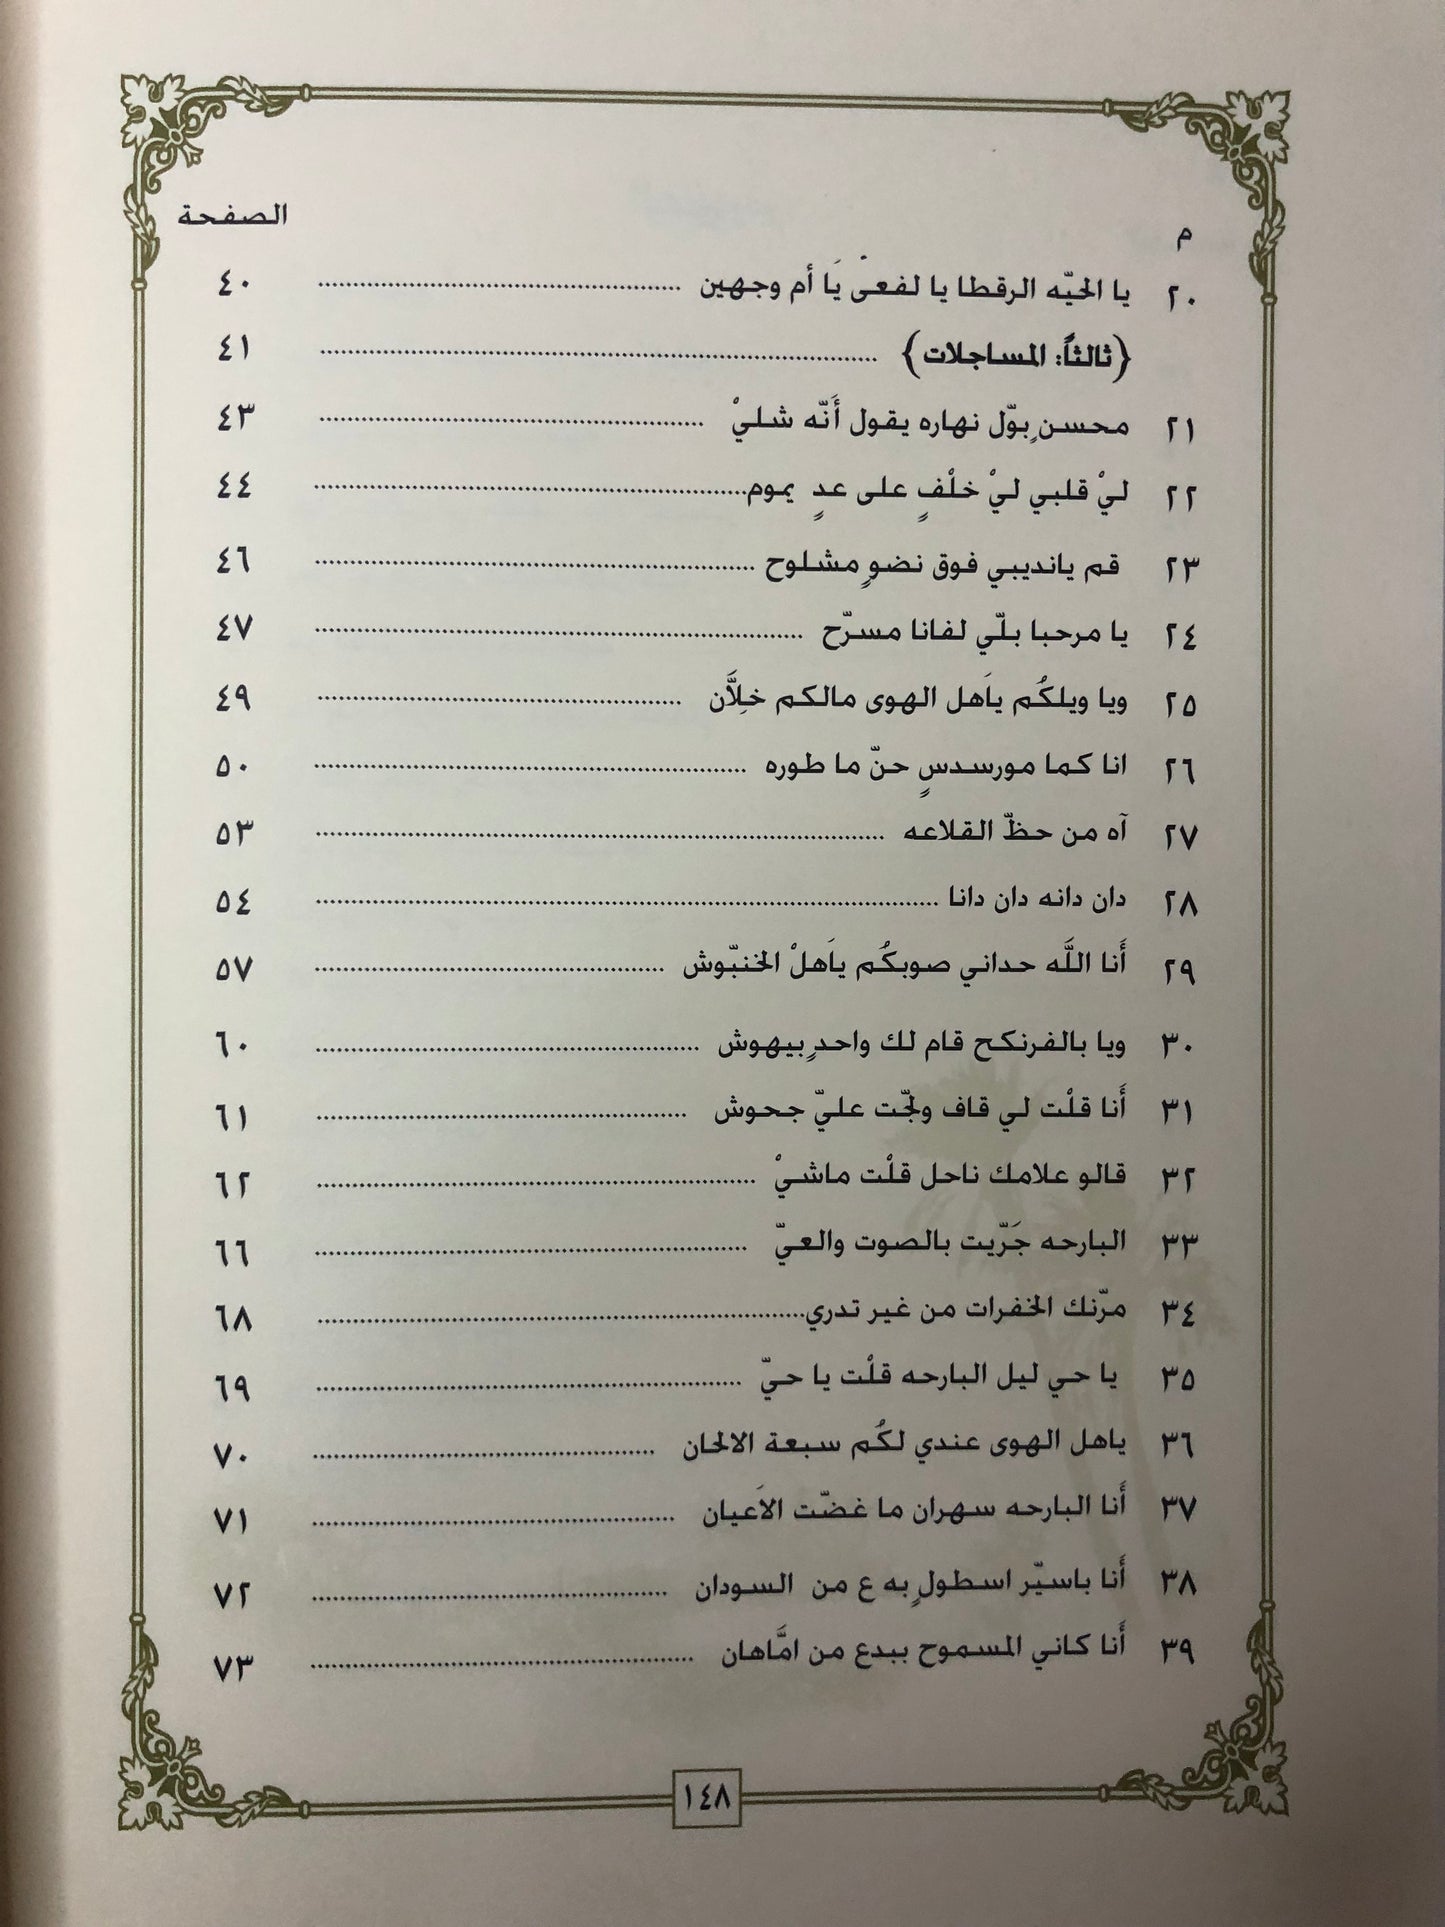 م الصفحة
٢٠ يا الحيّه الرقطا يا لفعىْ يَا أم وجهين ........ ٤٠
(ثالثاً: المساجلات) ........ ٤١
٢١ محسنٍ بوّل نهاره يقول أَنّه شليْ ........ ٤٣
٢٢ ليْ قلبي ليْ خلْفٍ على عدٍ يموم ........ ٤٤
٢٣ قم يانديبي فوق نضوٍ مشلوح ........ ٤٦
٢٤ يا مرحبا بلّي لفانا مسرّح ........ ٤٧
٢٥ ويا ويلكُم يآهل الهوى مالكم خلِاَّن ........ ٤٩
٢٦ انا كما مورسدسٍ حنّ ما طوره ........ ٥٠
٢٧ آه من حظّ القلاعه ........ ٥٣
٢٨ دان دانه دان دانا ........ ٥٤
٢٩ أَنا اللَّه حداني صوبكُم ياَهلْ الخنبّوش ........ ٥٧
٣٠ ويا بالفرنكح قام لك واحدٍ بيهوش ........ ٦٠
٣١ أَنا قلْت لي قاف ولجّت عليّ جحوش ........ ٦١
٣٢ قالو علامك ناحل قلْت ماشيْ ........ ٦٢
٣٣ البارحه جَرّيت بالصوت والعيّ ........ ٦٦
٣٤ مرّنك الخفرات من غير تدري ........ ٦٨
٣٥ يا حي ليل البارحه قلْت يا حيّ ........ ٦٩
٣٦ ياهل الهوى عندي لكُم سبعة الالحان ........ ٧٠
٣٧ أَنا البارحه سهران ما غضّت الاَعيان ........ ٧١
٣٨ أَنا باسيّر اسطولٍ به ع من السودان ........ ٧٢
٣٩ أَنا كاني المسموح ببدع من امَّاهان ........ ٧٣
١٤٨